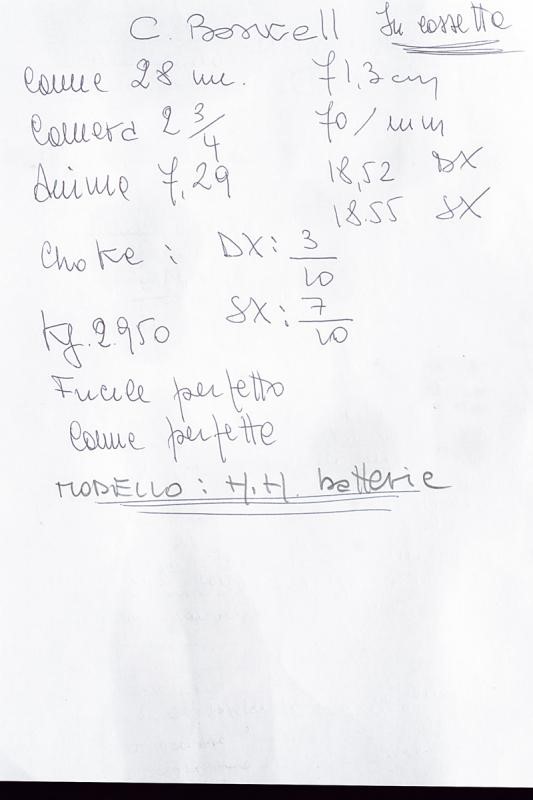 C. Boswell In cassetta
Canne 28 in. 71,3 cm
Camera 2 3/4 70/mm
Anime 7,29 18,52 DX
18.55 SX
Choke: DX: 3/10
SX: 7/10
Kg. 2.950
Fucile perfetto
Canne perfette
MODELLO: H.H. batterie